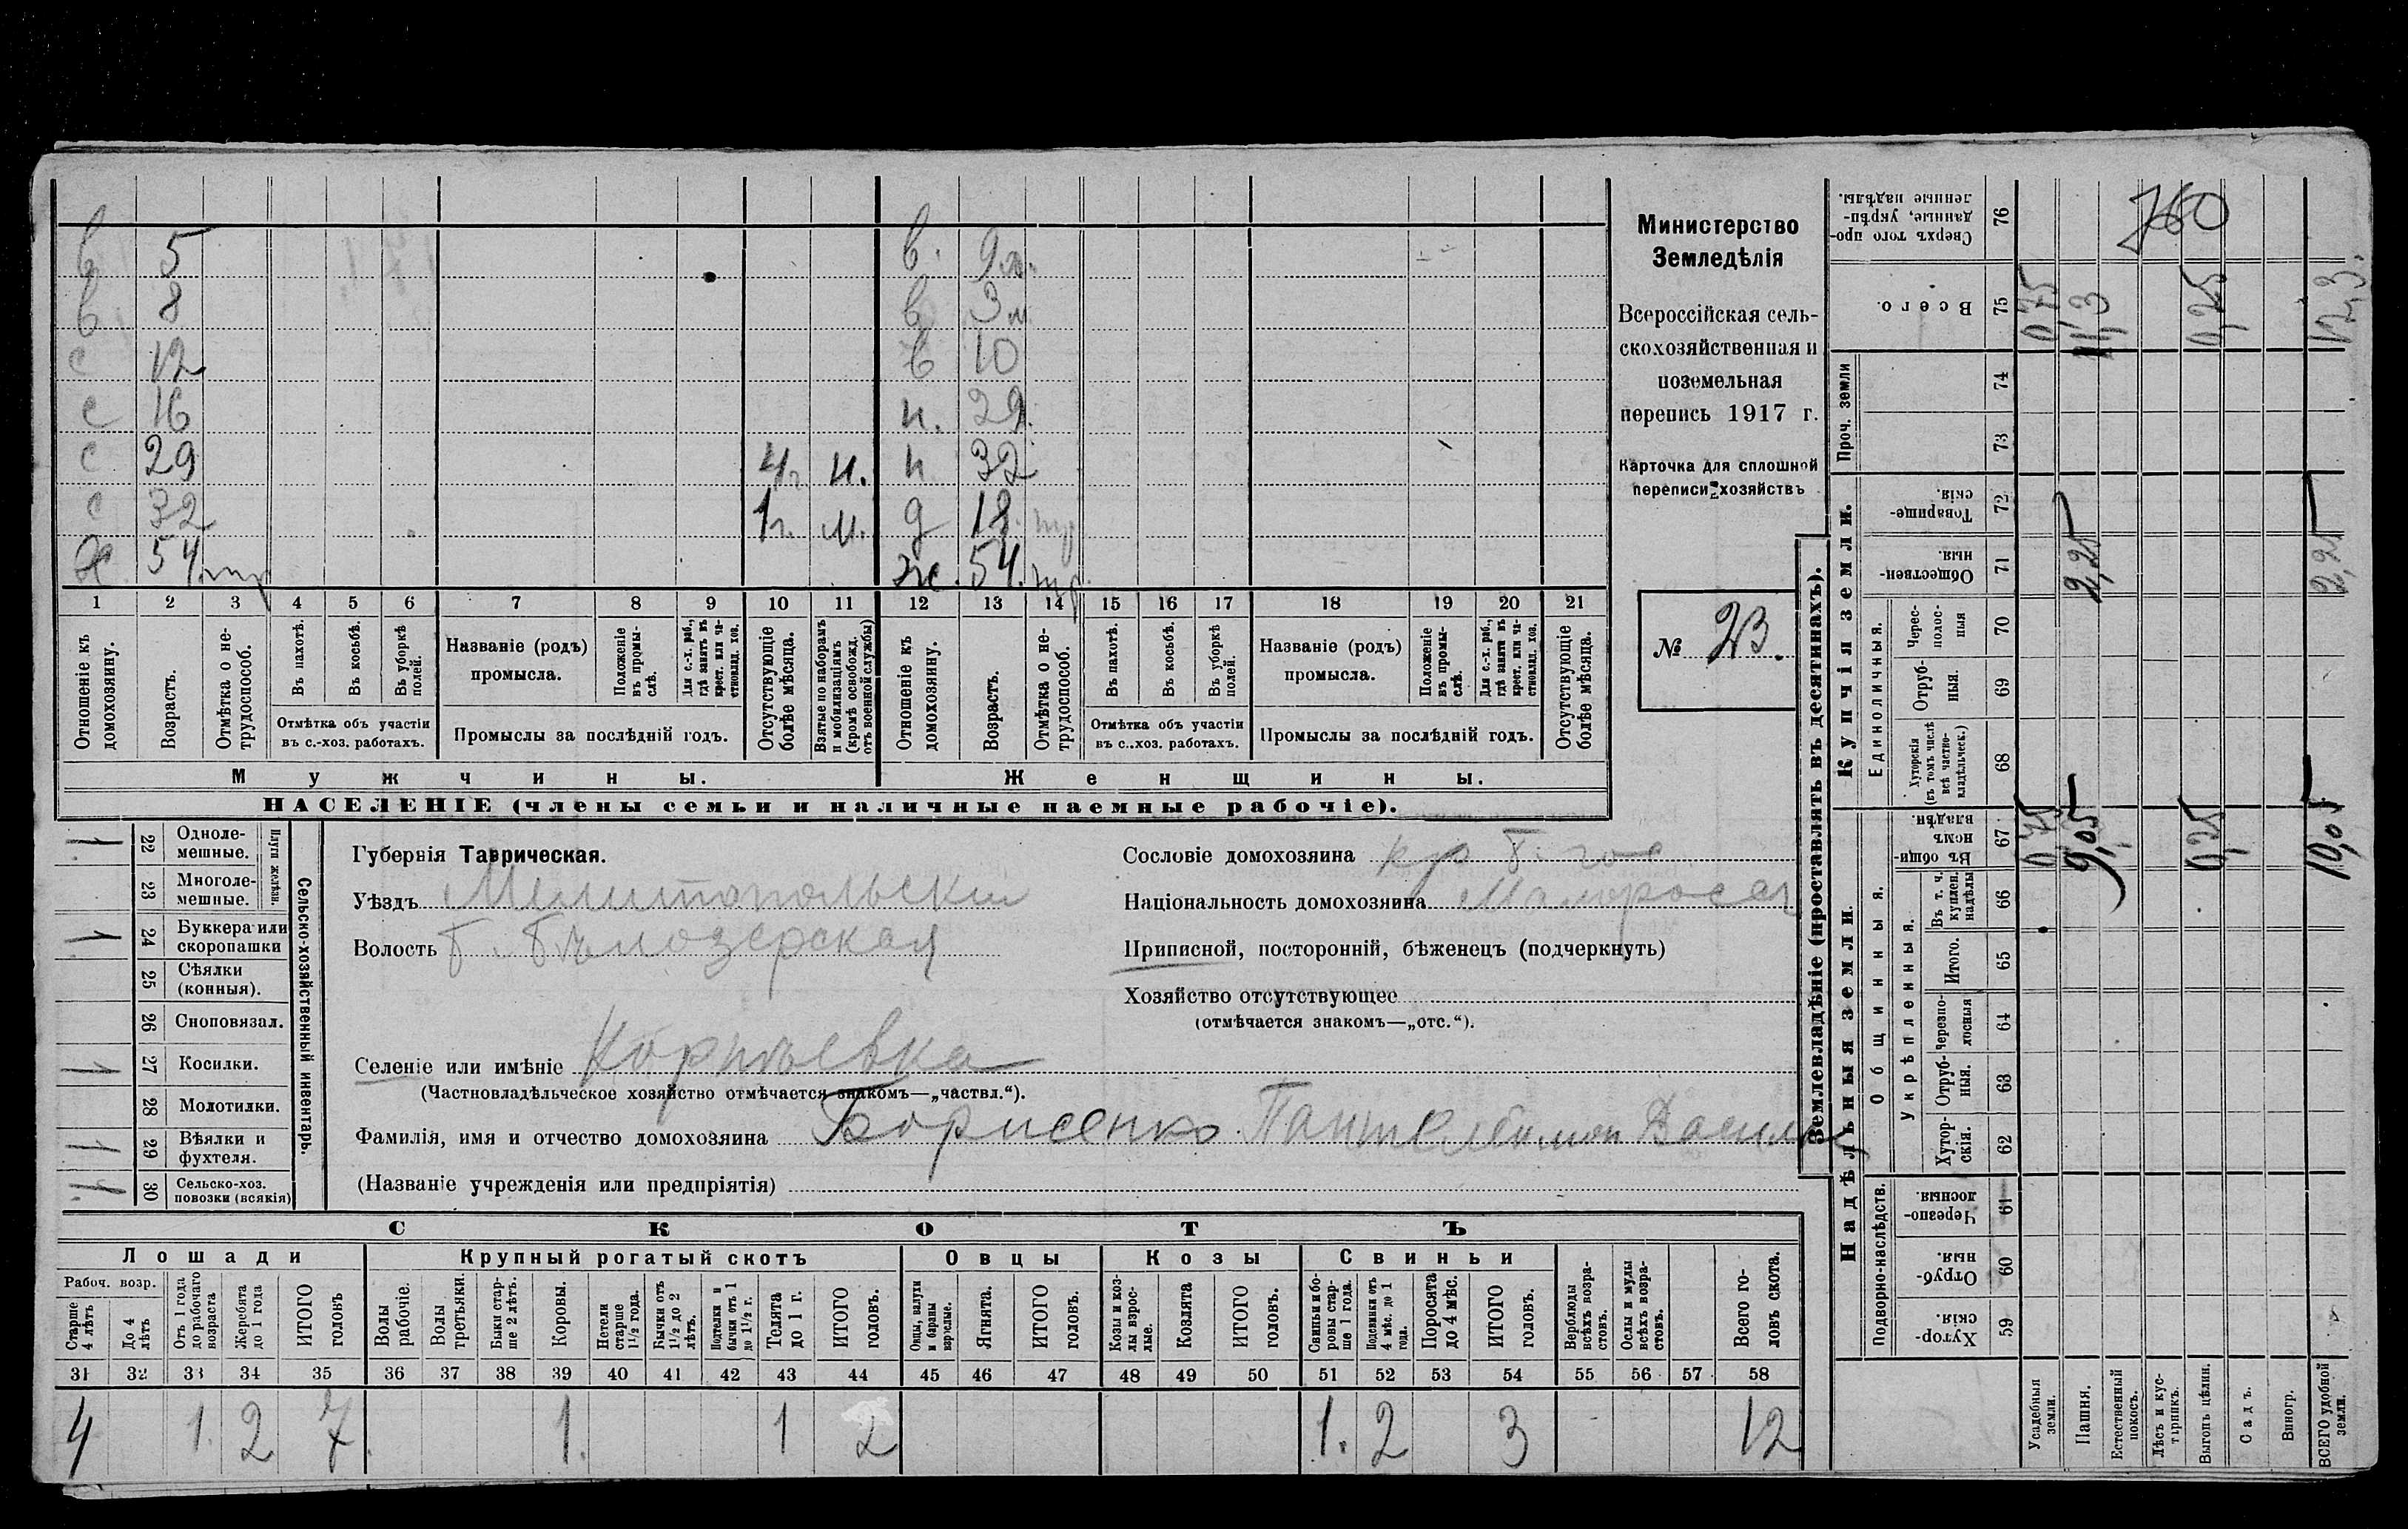 в 5 в. 9 м.
в 8 в 3 м
с 12 в 10
с 16 н. 29.
с 29 4 г. н. н 32
с 32 1 г. м. д 18. тр
Х 54. тр ж. 54. тр.
1 2 3 4 5 6 7 8 9 10 11 12 13 14 15 16 17 18 19 20 21
Отношеніе къ домохозяину.
Возрастъ.
Отмѣтка о не-трудоспособ.
Въ пахотѣ.
Въ косьбѣ.
Въ уборкѣ полей.
Отмѣтка объ участіи
въ с.-хоз. работахъ.
Названіе (родъ)
промысла.
Положеніе въ промы-слѣ.
Для с.-х. раб., гдѣ занятъ въ крест. или ча-стновлад. хоз.
Промыслы за послѣдній годъ.
Отсутствующіе болѣе мѣсяца.
Взятые по наборамъ и мобилизаціямъ (кромѣ освобожд. отъ военной службы)
Отношеніе къ домохозяину.
Возрастъ.
Отмѣтка о не-трудоспособ.
Въ пахотѣ.
Въ косьбѣ.
Въ уборкѣ полей.
Отмѣтка объ участіи
въ с..хоз. работахъ.
Названіе (родъ)
промысла.
Положеніе въ промы-слѣ.
Для с.-х. раб., гдѣ занята въ крест. или ча-стновлад. хоз.
Промыслы за послѣдній годъ.
Отсутствующіе болѣе мѣсяца.
Мужчины. Женщины.
НАСЕЛЕНІЕ (члены семьи и наличные наемные рабочіе).
Министерство
Земледѣлія
Всероссійская сель-
скохозяйственная и
поземельная
перепись 1917 г.
Карточка для сплошной
переписи хозяйствъ
№ 23.
Сельско-хозяйственный инвентарь.
Плуги желѣзн.
1 22 Одноле-мешные.
23 Многоле-мешные.
1 24 Буккера или скоропашки
25 Сѣялки (конныя).
26 Сноповязал.
1 27 Косилки.
28 Молотилки.
1 29 Вѣялки и фухтеля.
30 Сельско-хоз. повозки (всякія)
Губернія Таврическая.
Уѣздъ Мелитопольскій
Волость Б. Бѣлозерская
Селеніе или имѣніе
(Частновладѣльческое хозяйство отмѣчается знакомъ—„частвл.“).
Фамилія, имя и отчество домохозяина Борисенко Пантелеймон Васил
(Названіе учрежденія или предпріятія)
Сословіе домохозяина
Національность домохозяина Малоросъ
Приписной, посторонній, бѣженецъ (подчеркнуть)
Хозяйство отсутствующее
(отмѣчается знакомъ—„отс.“).
СКОТЪ
Лошади Крупный рогатый скотъ Овцы Козы Свиньи
Рабоч. возр.
Старше 4 лѣтъ
До 4 лѣтъ
Отъ 1 года до рабочаго возраста
Жеребята до 1 года
ИТОГО головъ
Волы рабочіе.
Волы третьяки.
Быки стар-ше 2 лѣтъ.
Коровы.
Нетели старше 1 1/2 года.
Бычки отъ 1 1/2 до 2 лѣтъ.
Подтелки и бычки отъ 1 до 1 1/2 г.
Телята до 1 г.
ИТОГО головъ.
Овцы, валухи и бараны взрослые.
Ягнята.
ИТОГО головъ.
Козы и коз-лы взрос-лые.
Козлята
ИТОГО головъ.
Свиньи и бо-ровы стар-ше 1 года.
Подсвинки отъ 4 мѣс. до 1 года.
Поросята до 4 мѣс.
ИТОГО головъ.
Верблюды всѣхъ возра-стовъ.
Ослы и мулы всѣхъ возра-стовъ.
Всего го-ловъ скота.
31 32 33 34 35 36 37 38 39 40 41 42 43 44 45 46 47 48 49 50 51 52 53 54 55 56 57 58
4 1. 2 7. 1. 1 2 1. 2 3 12
Землевладѣніе (проставлять въ десятинахъ).
Надѣльныя земли.
Подворно-наслѣдств.
Хутор-скія. 59
Отруб-ныя. 60
Черезпо-лосныя. 61
Общинныя.
Укрѣпленныя.
Хутор-скія. 62
Отруб-ныя. 63
Черезпо-лосныя 64
Итого. 65
Въ т. ч. куплен. надѣлы 66
Въ общи-номъ владѣн. 67
Купчія земли.
Единоличныя.
Хуторскія (въ томъ числѣ всѣ частно-владѣльческ.) 68
Отруб-ныя. 69
Черес-полос-ныя 70
Обществен-ныя. 71
Товарище-скія. 72
Проч. земли
73 74
Всего. 75
Сверхъ того про-данные, укрѣп-ленные надѣлы. 76
Усадебныя земли. 0,75 0,75
Пашня. 9,05 2,25 11,3
Естественный покосъ.
Лѣсъ и кус-тарникъ.
Выгонъ цѣлин. 0,25 0,25
Садъ.
Виногр.
ВСЕГО удобной земли. 10,05 2,25 12,3.
760